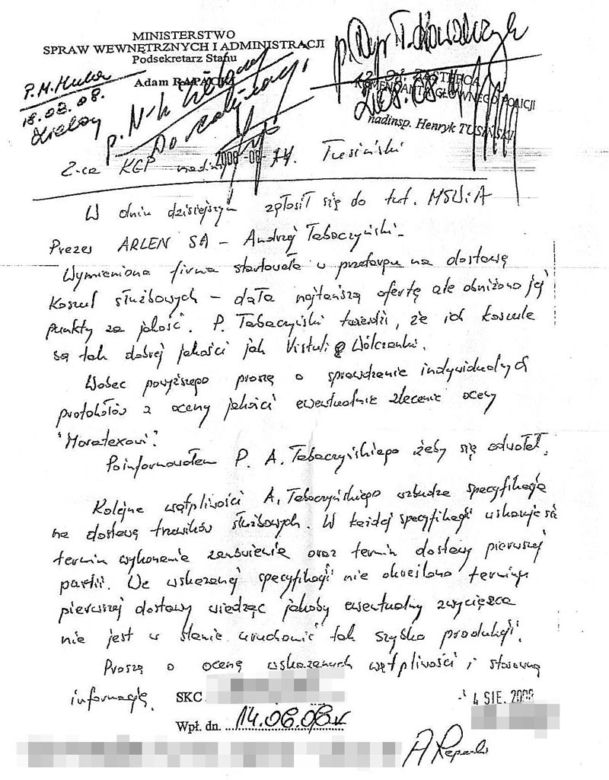 MINISTERSTWO
SPRAW WEWNĘTRZNYCH I ADMINISTRACJI
Podsekretarz Stanu
Adam RAPACKI
P.M. Huka
18.08.08.
p. N-k
Do realizacji
ZASTĘPCA
KOMENDANTA GŁÓWNEGO POLICJI
nadinsp. Henryk TUSIŃSKI
2008-08-14
Z-ca KGP nadinsp. H. Tusiński
W dniu dzisiejszym zgłosił się do tut. MSWiA
Prezes ARLEN SA – Andrzej Tabaczyński.
Wymieniona firma startowała w przetargu na dostawę
koszul służbowych – dała najtańszą ofertę ale obniżono jej
punkty za jakość. P. Tabaczyński twierdzi, że ich koszule
są tak dobrej jakości jak Vistuli i Wólczanki.
Wobec powyższego proszę o sprawdzenie indywidualnych
protokołów z oceny jakości ewentualnie zlecenie oceny
"Moratexowi".
Poinformowałem P. A. Tabaczyńskiego żeby się odwołał.
Kolejne wątpliwości A. Tabaczyńskiego wzbudza specyfikacja
na dostawę trzewików służbowych. W każdej specyfikacji wskazuje się
termin wykonania zamówienia oraz termin dostawy pierwszej
partii. We wskazanej specyfikacji nie określono terminu
pierwszej dostawy wiedząc jakoby ewentualny zwycięzca
nie jest w stanie uruchomić tak szybko produkcji.
Proszę o ocenę wskazanych wątpliwości i stosowną
informację.
SKC
4 SIE. 2008
Wpł. dn. 14.08.08
A Rapacki